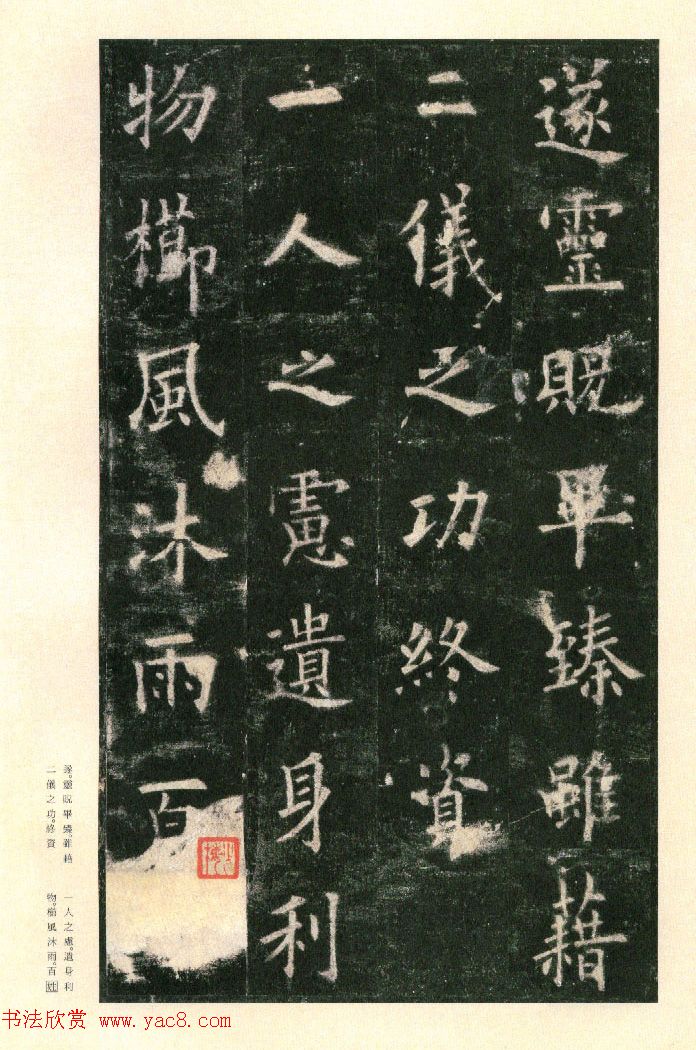 遂靈貺畢臻雖藉
二儀之功終資
一人之慮遺身利
物櫛風沐雨百
遂靈貺畢臻雖藉
二儀之功終資
一人之慮遺身利
物櫛風沐雨百姓
书法欣赏 www.yac8.com